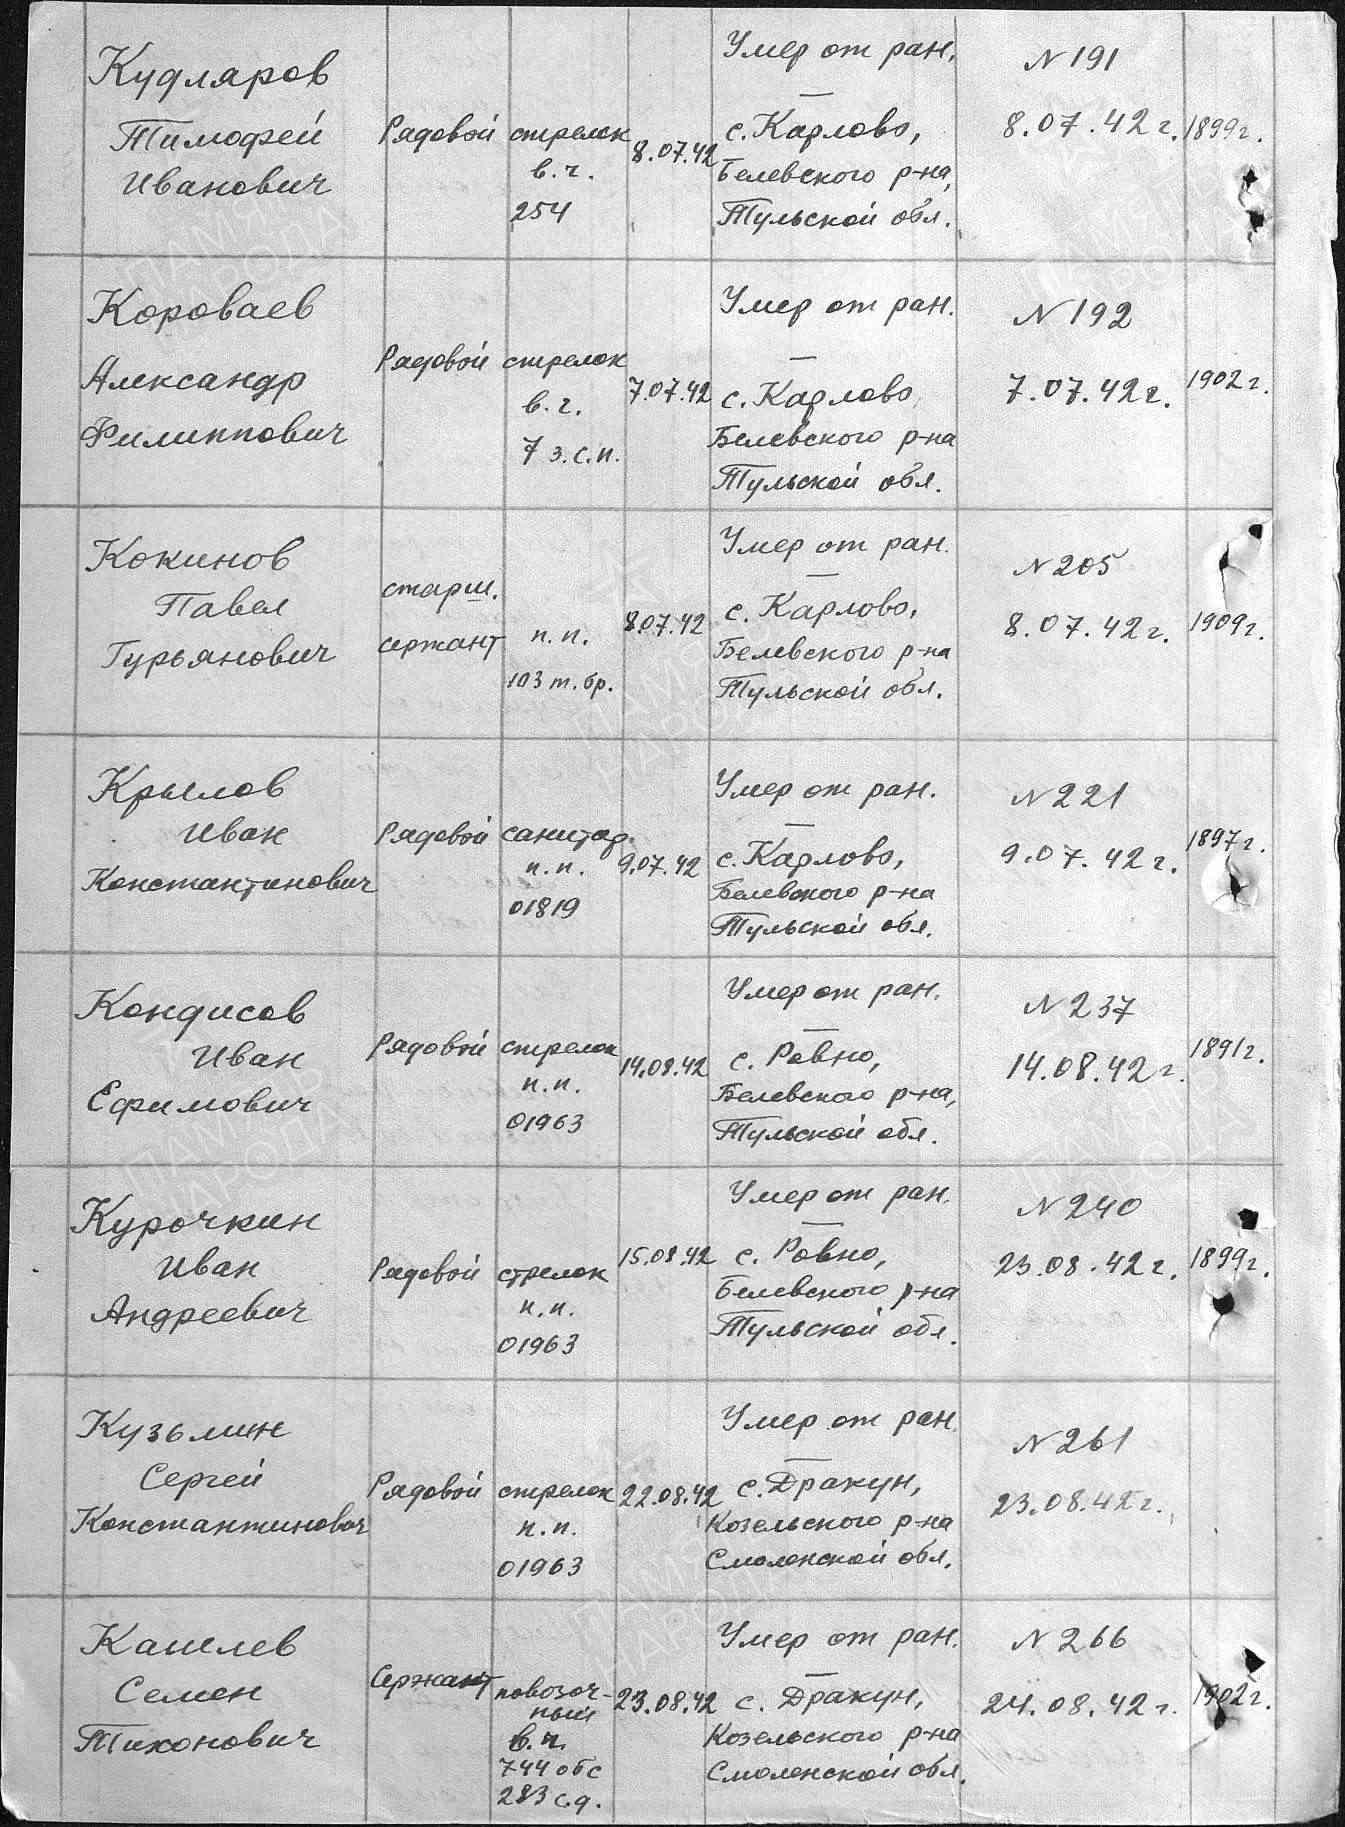 Кудляров
Тимофей
Иванович
Рядовой
стрелок
в.ч.
254
8.07.42
Умер от ран.
с. Карлово,
Белевского р-на,
Тульской обл.
N 191
8.07.42 г.
1899 г.
Короваев
Александр
Филиппович
Рядовой
стрелок
в.ч.
7 з.с.п.
7.07.42
Умер от ран.
с. Карлово,
Белевского р-на
Тульской обл.
N 192
7.07.42 г.
1902 г.
Кокинов
Павел
Гурьянович
старш.
сержант
п.п.
103 т.бр.
8.07.42
Умер от ран.
с. Карлово,
Белевского р-на
Тульской обл.
N 205
8.07.42 г.
1909 г.
Крылов
Иван
Константинович
Рядовой
санитар
п.п.
01819
9.07.42
Умер от ран.
с. Карлово,
Белевского р-на
Тульской обл.
N 221
9.07.42 г.
1897 г.
Кондисов
Иван
Ефимович
Рядовой
стрелок
п.п.
01963
14.08.42
Умер от ран.
с. Ровно,
Белевского р-на,
Тульской обл.
N 237
14.08.42 г.
1891 г.
Курочкин
Иван
Андреевич
Рядовой
стрелок
п.п.
01963
15.08.42
Умер от ран.
с. Ровно,
Белевского р-на
Тульской обл.
N 240
23.08.42 г.
1899 г.
Кузьмин
Сергей
Константинович
Рядовой
стрелок
п.п.
01963
22.08.42
Умер от ран.
с. Дракун,
Козельского р-на
Смоленской обл.
N 261
23.08.42 г.
Кашлев
Семен
Тихонович
Сержант
повозоч-
ный
в.ч.
744 обс
283 с.д.
23.08.42
Умер от ран.
с. Дракун,
Козельского р-на
Смоленской обл.
N 266
24.08.42 г.
1902 г.
ПАМЯТЬ
НАРОДА